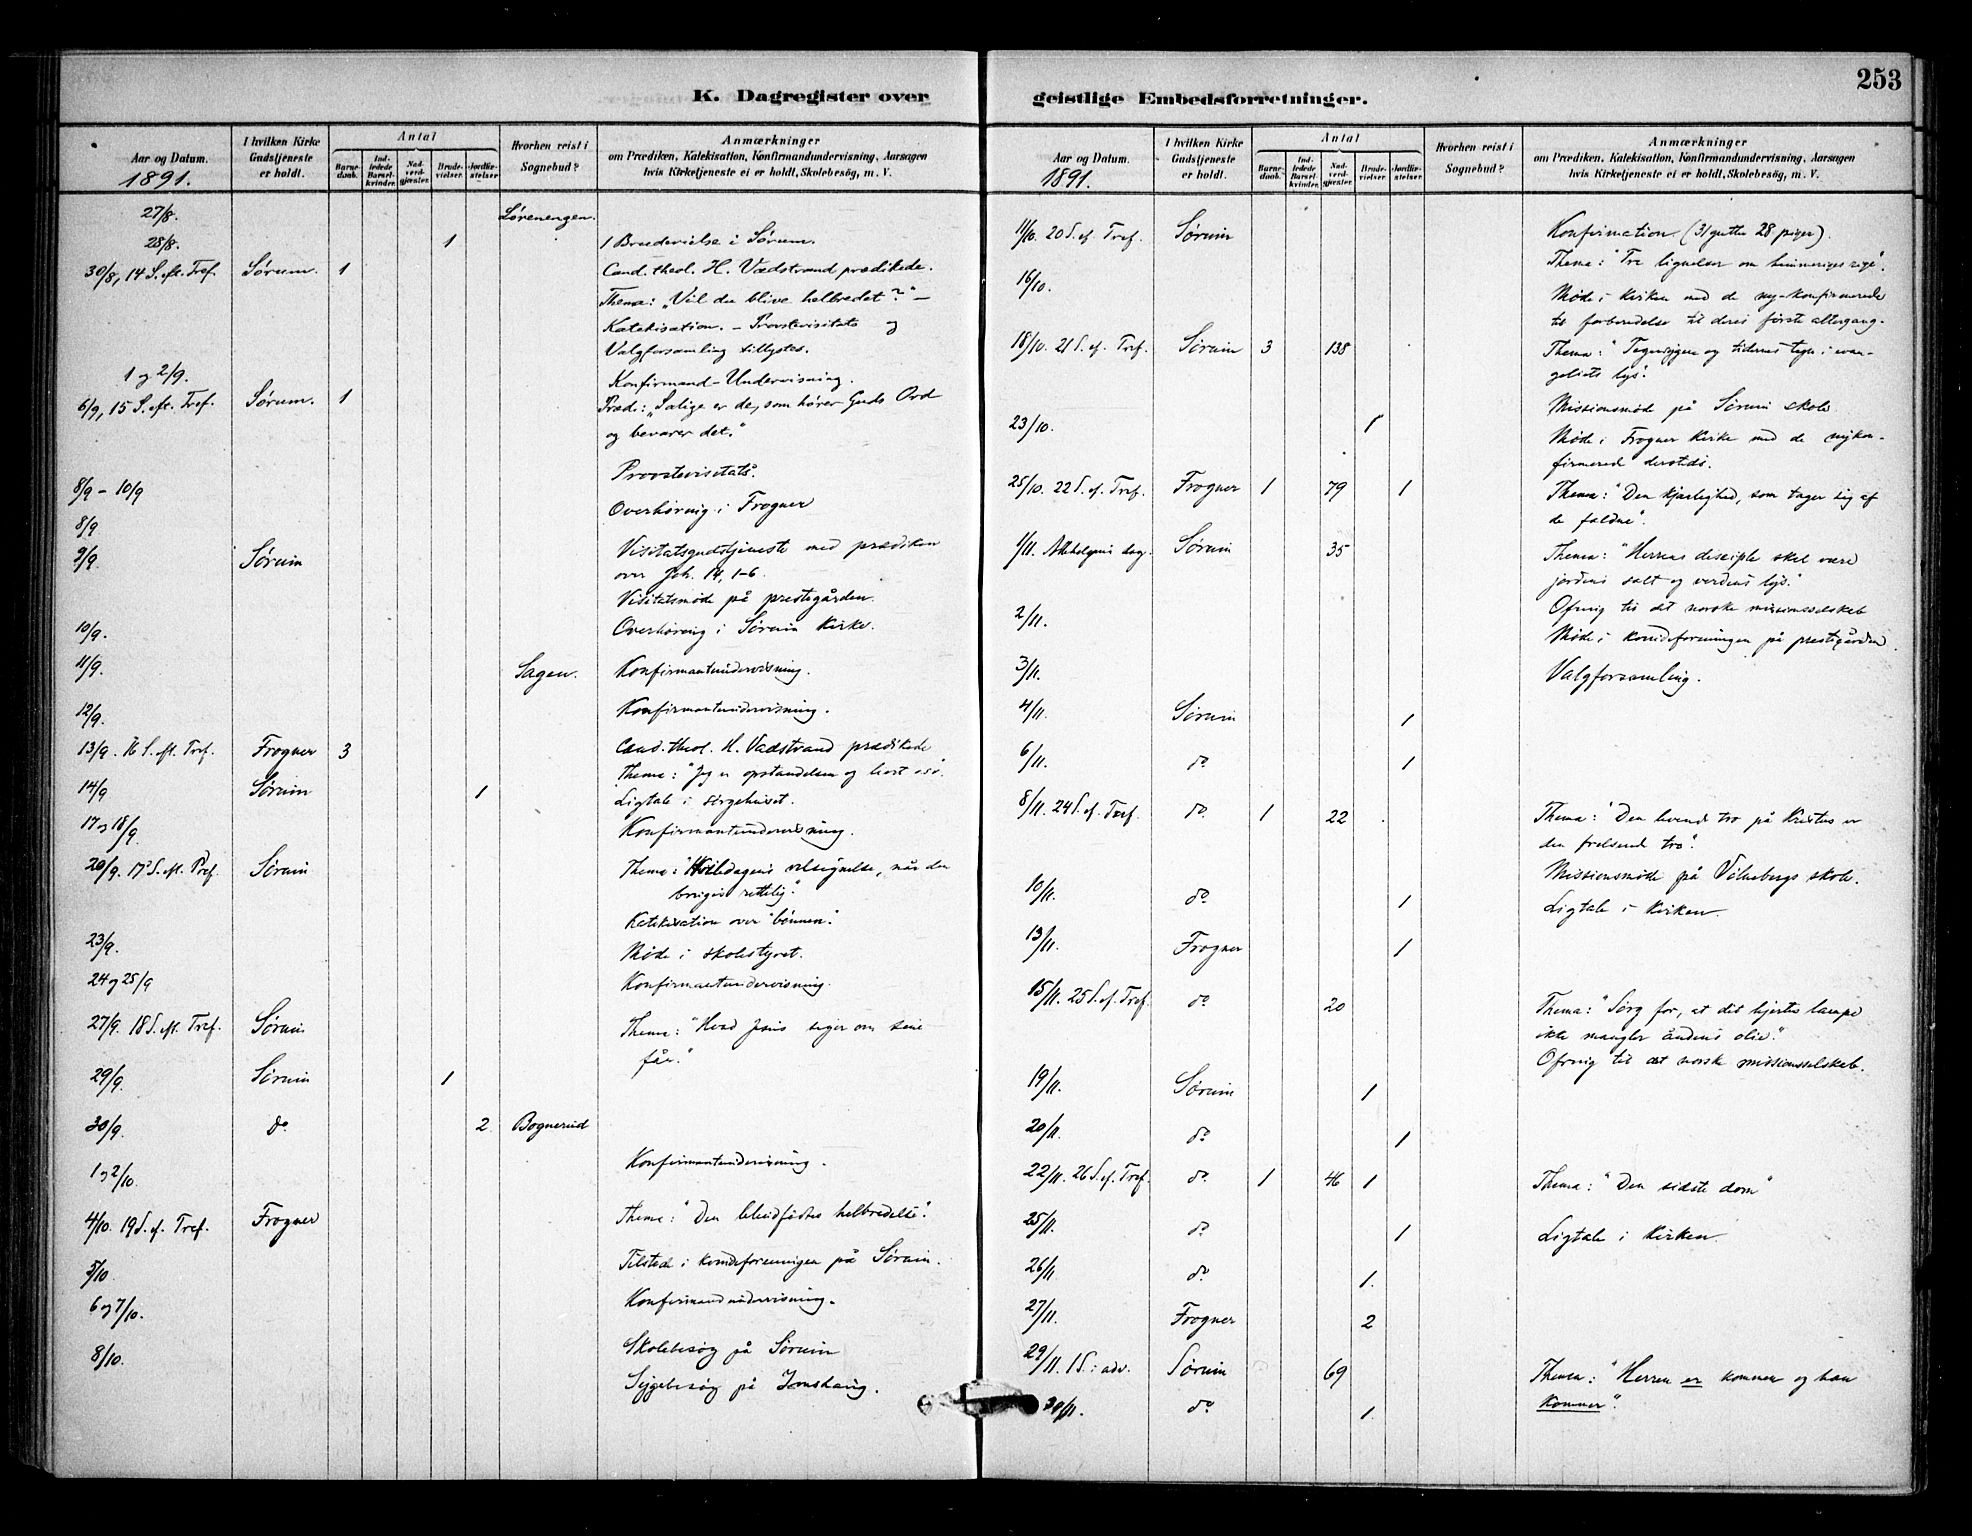 253
K. Dagregister over geistlige Embedsforretninger.
Aar og Datum.
1891.
I hvilken Kirke Gudstjeneste er holdt.
Antal
Barnedaab.
Indledede Barselkvinder.
Nadverdgjæster.
Brudevielser.
Jordfæstelser
Hvorhen reist i Sognebud?
Anmærkninger
om Prædiken, Katekisation, Konfirmandundervisning, Aarsagen
hvis Kirketjeneste ei er holdt, Skolebesøg, m. V.
27/8. Lørenengen.
28/8. 1 1 Brudevielse i Sørum.
30/8, 14 S. eft. Tref. Sørum. 1 Cand. theol. H. Vadstrand prædikede.
Thema: „Vil du blive helbredet?" –
Katekisation. – Provstevisitats og
Valgforsamling tillystes.
1 og 2/9. Konfirmand-Undervisning.
6/9, 15 S. eft. Tref. Sørum. 1 Præd.: „Salige er de, som hører Guds Ord
og bevarer det."
8/9 – 10/9 Provstevisitats.
8/9 Overhøring i Frogner
9/9. Sørum Visitatsgudstjeneste med prædiken
over Joh. 14, 1-6.
Visitatsmøde på prestegården.
10/9. Overhøring i Sørum Kirke.
11/9. Sagen. Konfirmantundervisning.
12/9. Konfirmantundervisning.
13/9. 16 S. eft. Tref. Frogner 3 Cand. theol. H. Vadstrand prædikede
Thema: "Jeg er opstandelsen og livet
14/9 Sørum 1 Ligtale i sørgehuset.
17 og 18/9. Konfirmantundervisning.
20/9. 17 S. eft. Tref. Sørum Thema: "Hviledagens velsignelse, når den
bruges rettelig".
Katekisation over "bønnen".
23/9. Møde i skolestyret.
24 og 25/9 Konfirmantundervisning.
27/9. 18 S. eft. Tref. Sørum Thema: "Hvad Jesus siger om sine
får."
29/9. Sørum 1
30/9. do 2 Bognerud
1 og 2/10. Konfirmantundervisning.
4/10. 19 S. ef. Tref. Frogner Thema: "Den blindfødtes helbredelse".
5/10. Tilstede i kvindeforeningen på Sørum.
6 og 7/10. Konfirmandundervisning.
8/10. Skolebesøg på Sørum
Sygebesøg på
Aar og Datum.
1891.
I hvilken Kirke Gudstjeneste er holdt.
Antal
Barnedaab.
Indledede Barselkvinder.
Nadverdgjæster.
Brudevielser.
Jordfæstelser
Hvorhen reist i Sognebud?
Anmærkninger
om Prædiken, Katekisation, Konfirmandundervisning, Aarsagen
hvis Kirketjeneste ei er holdt, Skolebesøg, m. V.
11/10. 20 S. ef. Tref. Sørum Konfirmation (31 gutter 28 piger).
Thema: "Tre lignelser om himmeriges rige".
16/10. Møde i Kirken med de ny-konfirmerede
til forberedelse til deres første altergang.
18/10. 21 S. ef. Tref. Sørum 3 138 Thema: og tidernes tegn i evangeliets
lys".
Missionsmøde på Sørum skole
23/10. 1 Møde i Frogner Kirke med de nykonfirmerede
dersteds.
25/10. 22 S. ef. Tref. Frogner 1 79 1 Thema: "Den kjærlighed, som tager sig af
de faldne".
1/11. Allehelgens dag. Sørum 35 Thema: "Herrens disciple skal være
jordens salt og verdens lys."
Ofring til det norske missionsselskab
2/11. Møde i kvindeforeningen på prestegården.
3/11. Valgforsamling.
4/11. Sørum 1
6/11. do 1
8/11. 24 S. ef. Tref. do 1 22 Thema: "Den tro på Kristus er
den frelsende tro".
Missionsmøde på Vilbergs skole.
10/11. do 1 Ligtale i Kirken.
13/11. Frogner 1
15/11. 25 S. ef. Tref. do 20 Thema: "Sørg for, at dit hjertes lampe
ikke mangler åndens olie."
Ofring til det norsk missionsselskab.
19/11. Sørum 1
20/11. do 1
22/11. 26 S. ef. Tref. do 1 46 1 Thema: "Den sidste dom"
25/11. do 1 Ligtale i Kirken.
26/11. do 1.
27/11. Frogner 2
29/11. 1 S. i adv. Sørum 69 Thema: "Herren er kommen og han
kommer".
30/11. do 1.